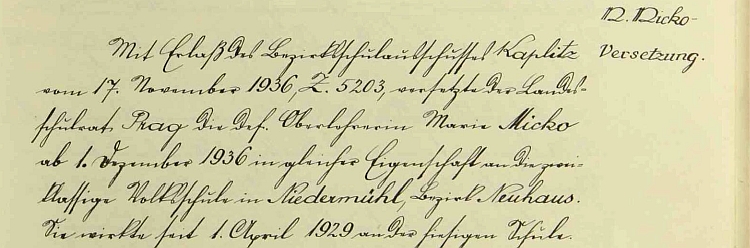 M. Micko-
Versetzung.
Mit Erlaß des Bezirksschulausschusses Kaplitz
vom 17. November 1936, Z. 5203, versetzte der Landes-
schulrat Prag die def. Oberlehrerin Marie Micko
ab 1. Dezember 1936 in gleicher Eigenschaft an die zwei-
klassige Volksschule in Niedermühl, Bezirk Neuhaus.
Sie wirkte seit 1. April 1929 an der hiesigen Schule.